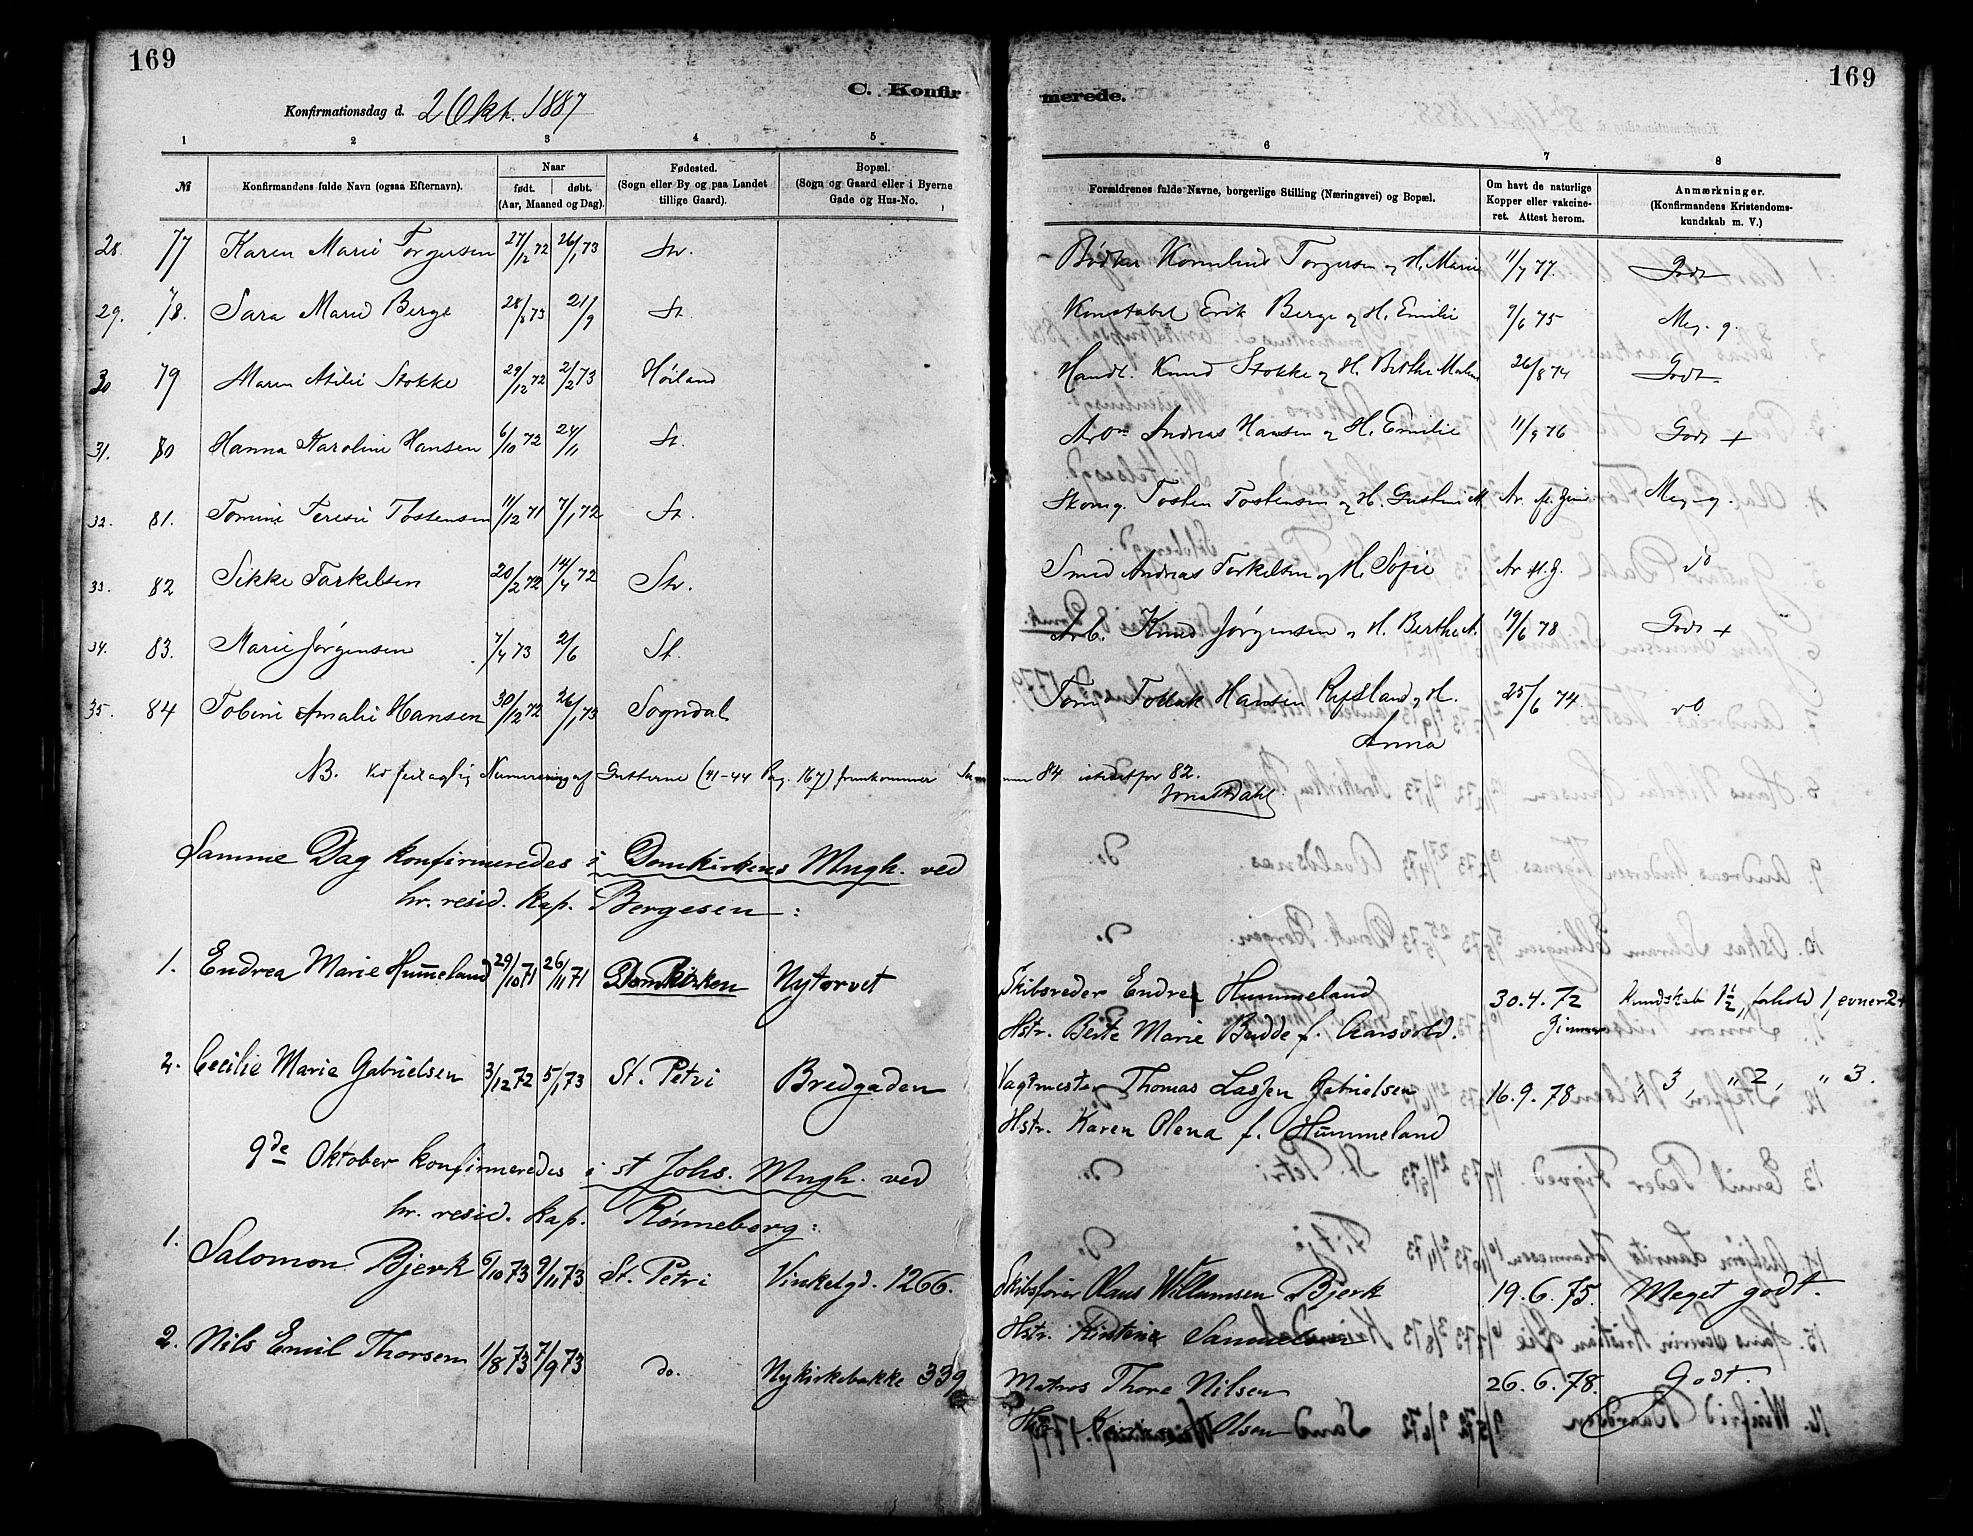 169
169
C. Konfir
merede.
Konfirmationsdag d. 2 Okt. 1887
1 2 3 4 5 6 7 8
№
Konfirmandens fulde Navn (ogsaa Efternavn).
Naar
født. døbt.
(Aar, Maaned og Dag).
Fødested.
(Sogn eller By og paa Landet
tillige Gaard).
Bopæl.
(Sogn og Gaard eller i Byerne
Gade og Hus-No.
Forældrenes fulde Navne, borgerlige Stilling (Næringsvei) og Bopæl.
Om havt de naturlige
Kopper eller vakcine-
ret. Attest herom.
Anmærkninger.
(Konfirmandens Kristendoms-
kundskab m. V.)
28. 77 Karen Marie Torgersen 27/12 72 26/1 73 St. Bødker Kornelius Torgersen og H. Marie 11/7 77. Godt
29. 78. Sara Marie Berge 28/8 73 21/9 St. Konstabel Erik Berge og H. Emilie 9/6 75 Meg. g.
30 79 Maren Atilie Stokke 29/12 72 2/2 73 Høiland Handl. Knud Stokke og H. Berthe Malene 26/8 74 Godt
31. 80 Hanna Karoline Hansen 6/10 72 24/11 St. Andreas Hansen og H. Emilie 11/9 76 Godt +
32. 81. Tomine Teresie Tostensen 11/12 71 7/1 72 St. Skomg. Tosten Tostensen og H. Ar. Meg. g.
33. 82 Sikke Tarkelsen 20/2 72 14/4 72 St. Smed Andreas Torkelsen og H. Sofie Ar do
34. 83. Marie Jørgensen 7/4 73 2/6 St. Arb. Knud Jørgensen og H. Berthe A. 19/6 78 Godt +
35. 84 Tobine Amalie Hansen 30/12 72 26/1 73 Sogndal Tollak Hansen Refsland og H. 25/6 74 do.
Anna
NB. Ved feilagtig Numerering af Gutterne (41-44 Pag. 167) fremkommer Summen 84 istedetfor 82.
Jonas Dahl
Samme Dag konfirmeredes i Domkirkens Mngh. ved
hr. resid. kap. Bergesen:
1. Endrea Marie Hummeland 29/10 71 26/11 71 Domkirken Nytorvet Skibsreder Endre Hummeland 30.4.72 Kundskab 1½, forhold 1, evner 2+
Hstr. Berte Marie Budde f. Aarsvold.
2. Cecilie Marie Gabrielsen 3/12 72 5/1 73 St. Petri Bredgaden Vagtmester Thomas Lassen Gabrielsen 16.9.78 " 3, " 2, " 3.
Hstr. Karen Olena f. Hummeland
9de Oktober konfirmeredes i st Johs. Mngh. ved
hr. resid. kap. Rønneberg:
1. Salomon Bjerk 6/10 73 9/11 73 St. Petri Vinkelgd. 1266. Skibsfører Olaus Willumsen Bjerk 19.6.75. Meget godt.
Hstr. Kirstine
2. Nils Emil Thorsen 1/8 73 7/9 73 do. Nykirkebakke 339 Matros Thore Nilsen 26.6.78. Godt.
Olsen